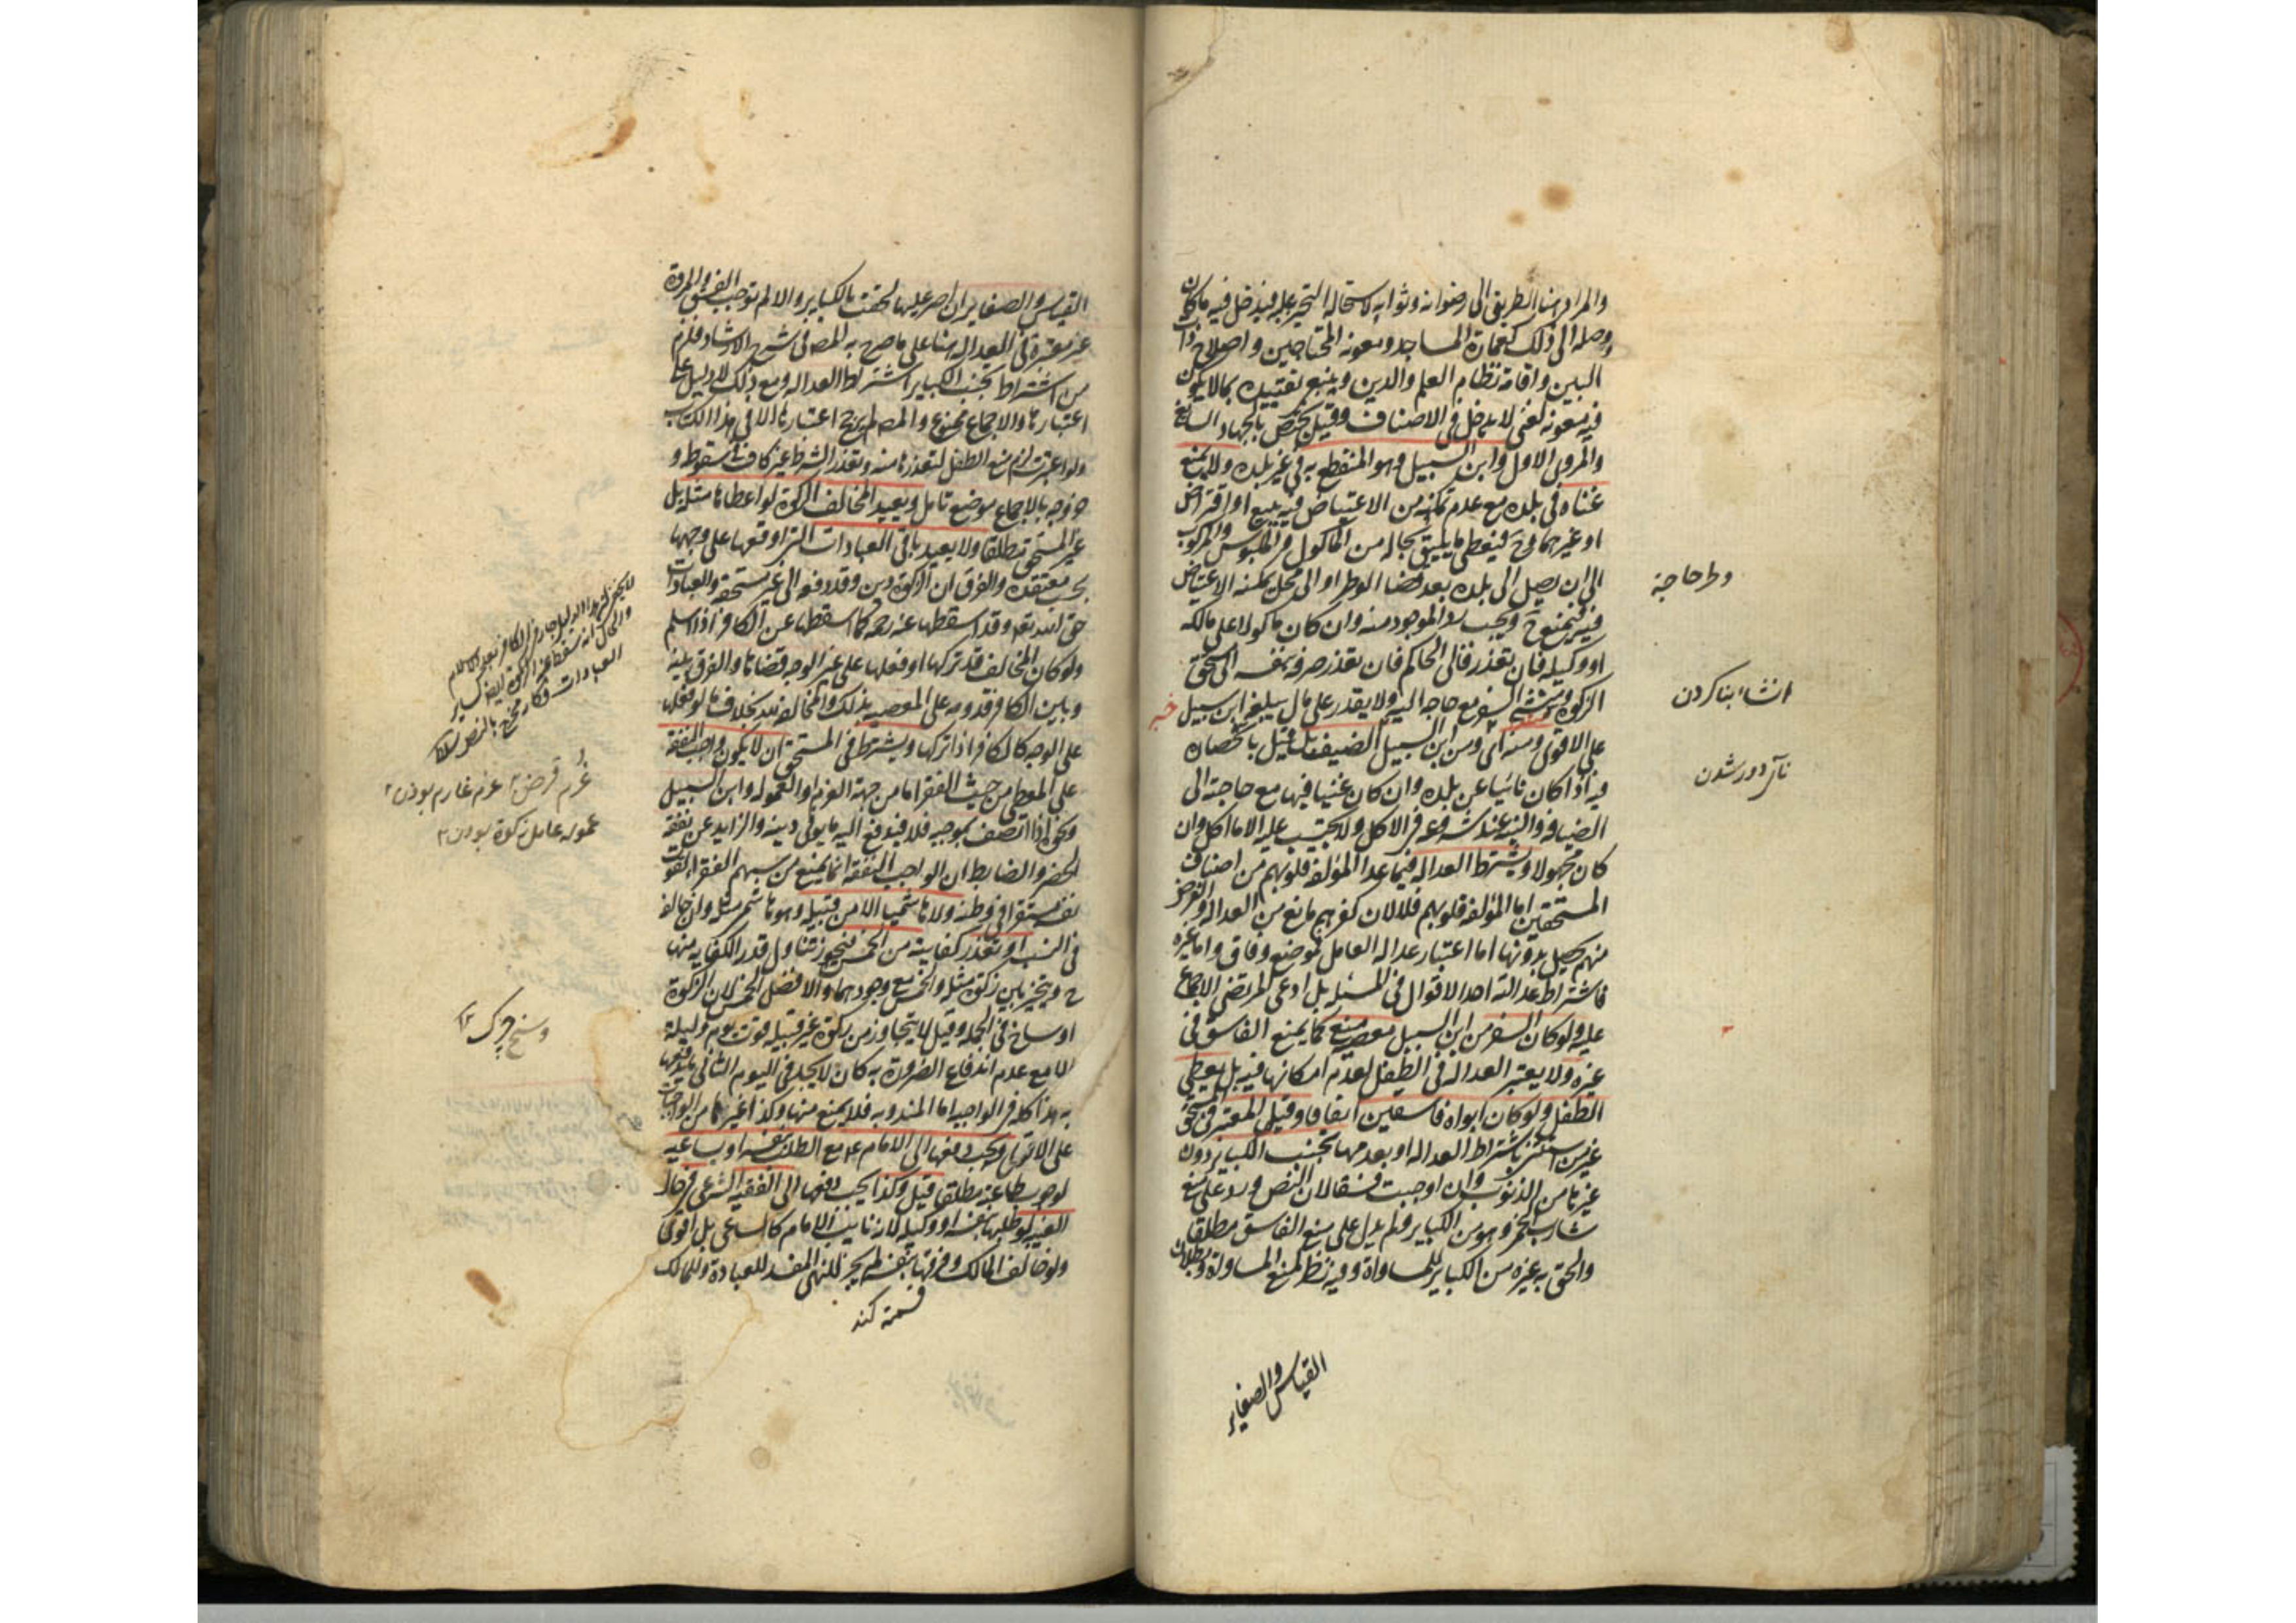 والمراد هنا الطريق الى رضوانه وثوابه لاستحالة التحيز عليه فيدخل فيه ما كان
وصلة الى ذلك كعمارة المساجد ومعونة المحتاجين واصلاح ذات
البين واقامة نظام العلم والدين وينبغي تقييده بما لا يكون
فيه معونة لغني لا يدخل في الاصناف وقيل يختص بالجهاد السايغ
والمروي الاول وابن السبيل وهو المنقطع به في غير بلده ولا يمنع
غناه في بلده مع عدم تمكنه من الاعتياض فيه ببيع او اقتراض
او غيرهما وح فيعطى ما يليق بحاله من الماكول والملبوس والمركوب
الى ان يصل الى بلده بعد قضاء الوطر او الى محل يمكنه الاعتياض
فيه فيمنع ح ويجب رد الموجود منه وان كان ماكولا على مالكه
او وكيله فان تعذر فالى الحاكم فان تعذر صرفه بنفسه الى مستحق
الزكوة ومنشئ السفر مع حاجته اليه ولا يقدر على مال يبلغه ابن سبيل
على الاقوى ومنه اي ومن ابن السبيل الضيف بل قيل بانحصاره
فيه اذا كان نائيا عن بلده وان كان غنيا فيها مع حاجته الى
الضيافة والنية عند شروعه في الاكل ولا يحتسب عليه الا ما اكل وان
كان مجهولا ويشترط العدالة فيما عدا المؤلفة قلوبهم من اصناف
المستحقين اما المؤلفة قلوبهم فلا لان كفرهم مانع من العدالة والغرض
منهم يحصل بدونها اما اعتبار عدالة العامل فموضع وفاق واما غيره
فاشتراط عدالته احد الاقوال في المسئلة بل ادعى المرتضى الاجماع
عليه ولو كان السفر من ابن السبيل معصية منع كما يمنع الفاسق في
غيره ولا يعتبر العدالة في الطفل لعدم امكانها فيه بل يعطى
الطفل ولو كان ابواه فاسقين اتفاقا وقيل المعتبر في المستحق
غير من استثني باشتراط العدالة او بعدمها تجنب الكباير دون
غيرها من الذنوب وان اوجبت فسقا لان النص ورد على منع
شارب الخمر وهو من الكباير ولم يدل على منع الفاسق مطلقا
والحق به غيره من الكباير للمساواة وفيه نظر لمنع المساواة وبطلان
القياس والصغاير
وطر حاجة
انشاء بنا كردن
نائى دور شدن
القياس والصغاير ان اصر عليها لحقت بالكباير والا لم توجب الفسق والمروة
غير معتبرة في العدالة هنا على ما صرح به المص في شرح الارشاد فلزم
من اشتراط تجنب الكباير اشتراط العدالة ومع ذلك لا دليل على
اعتبارها والاجماع ممنوع والمص لم يرجح اعتبارها الا في هذا الكتاب
ولو اعتبرت لزم منع الطفل لتعذرها منه وتعذر الشرط غير كاف في سقوطه و
خروجه بالاجماع موضع تامل ويعيد المخالف الزكوة لو اعطاها مثله بل
غير المستحق مطلقا ولا يعيد باقي العبادات التي اوقعها على وجهها
بحسب معتقده والفرق ان الزكوة دين وقد دفعه الى غير مستحقه والعبادات
حق الله تعالى وقد اسقطها عنه رحمة كما اسقطها عن الكافر اذا اسلم
ولو كان المخالف قد تركها او فعلها على غير الوجه قضاها والفرق بينه
وبين الكافر قدومه على المعصية بذلك والمخالفة لله بخلاف ما لو فعلها
على الوجه كالكافر اذا تركها ويشترط في المستحق ان لا يكون واجب النفقة
على المعطي من حيث الفقر اما من جهة الغرم او العمولة وابن السبيل
ونحوه اذا اتصف بموجبه فلا فيدفع اليه ما يوفي دينه والزايد عن نفقة
الحضر والضابط ان الواجب النفقة انما يمنع من سهم الفقراء لقوت
نفسه مستقرا في وطنه ولا هاشميا الا من قبيله وهو هاشمي مثله وان خالفه
في النسب او تعذر كفايته من الخمس فيجوز تناول قدر الكفاية منها
ح ويتخير بين زكوة مثله والخمس مع وجودهما والافضل الخمس لان الزكوة
اوساخ في الجملة وقيل لا يتجاوز من زكوة غير قبيله قوت يوم وليلة
الا مع عدم اندفاع الضرورة به كان لا يجد في اليوم الثاني ما يدفعها
به هذا كله في الواجبة اما المندوبة فلا يمنع منها وكذا غيرها من الواجبات
على الاقوى ويجب دفعها الى الامام ع مع الطلب بنفسه او بساعيه
لوجوب طاعته مطلقا قيل وكذا يجب دفعها الى الفقيه الشرعي في حال
الغيبة لو طلبها بنفسه او وكيله لانه نايب الامام كالساعي بل اقوى
ولو خالف المالك وفرقها بنفسه لم يجز للنهي المفسد للعبادة وللمالك
قسمة كند
غرم قرض غرم غارم بودن
عموله عامل زكوة بودن
وسخ چرك